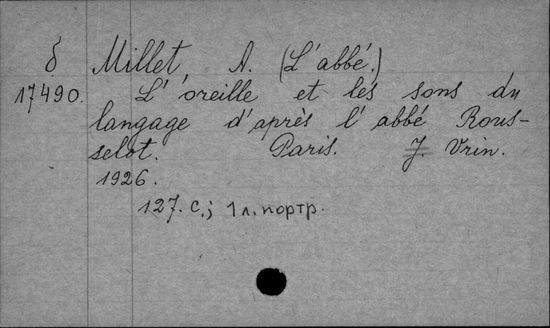 б Millet A. (L'abbé.)
17490. L'oreille et les sons du
langage d'après l'abbé Rous-
selot. Paris. J. Vrin.
1926.
127. с.; 1 л. портр.